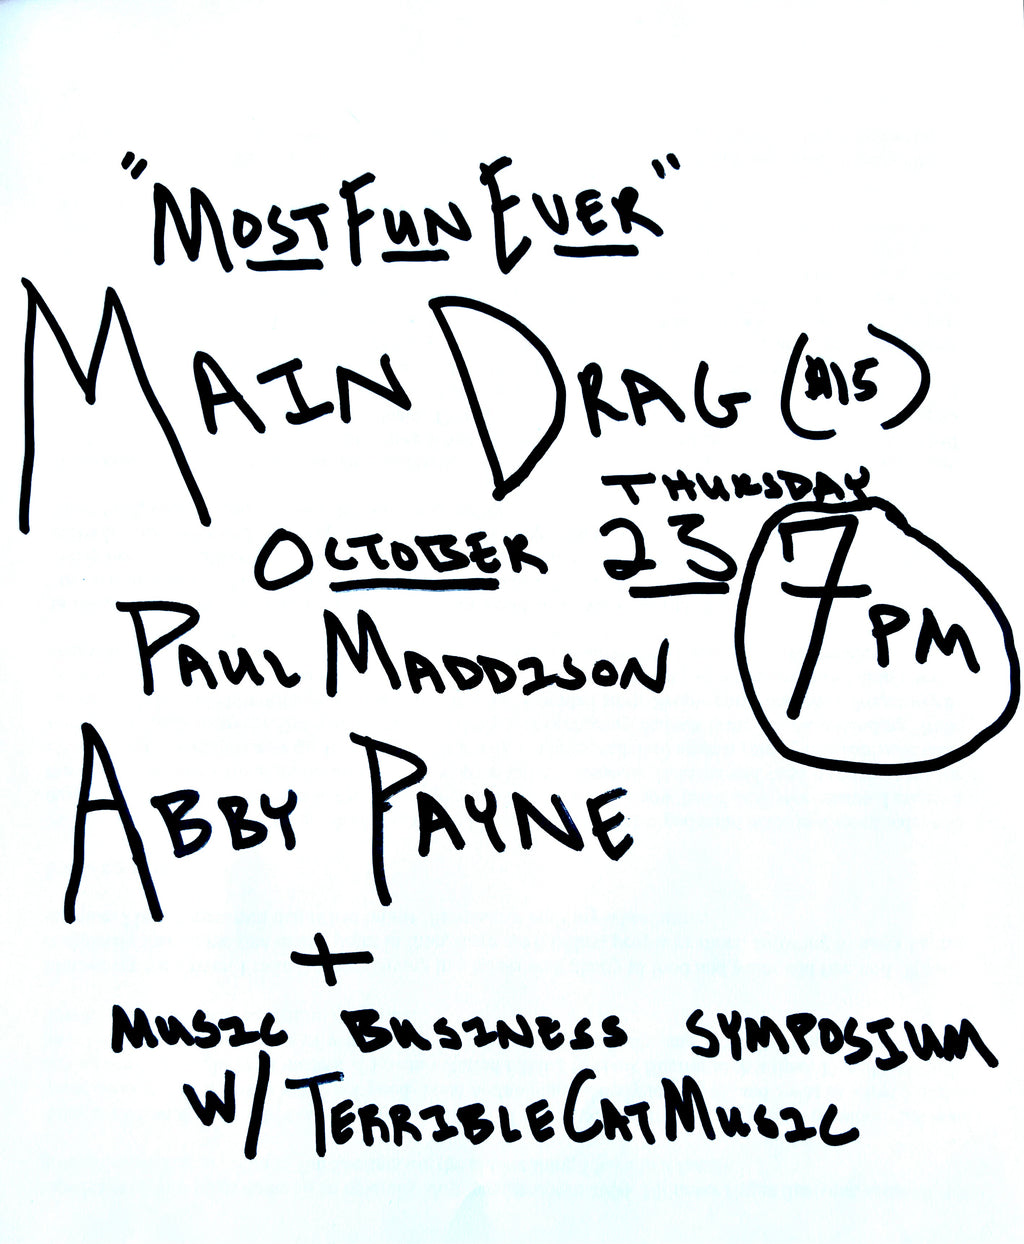 "MOST FUN EVER"
MAIN DRAG (#15)
THURSDAY
OCTOBER 23 7PM
PAUL MADDISON
ABBY PAYNE
+
MUSIC BUSINESS SYMPOSIUM
W/ TERRIBLECATMUSIC